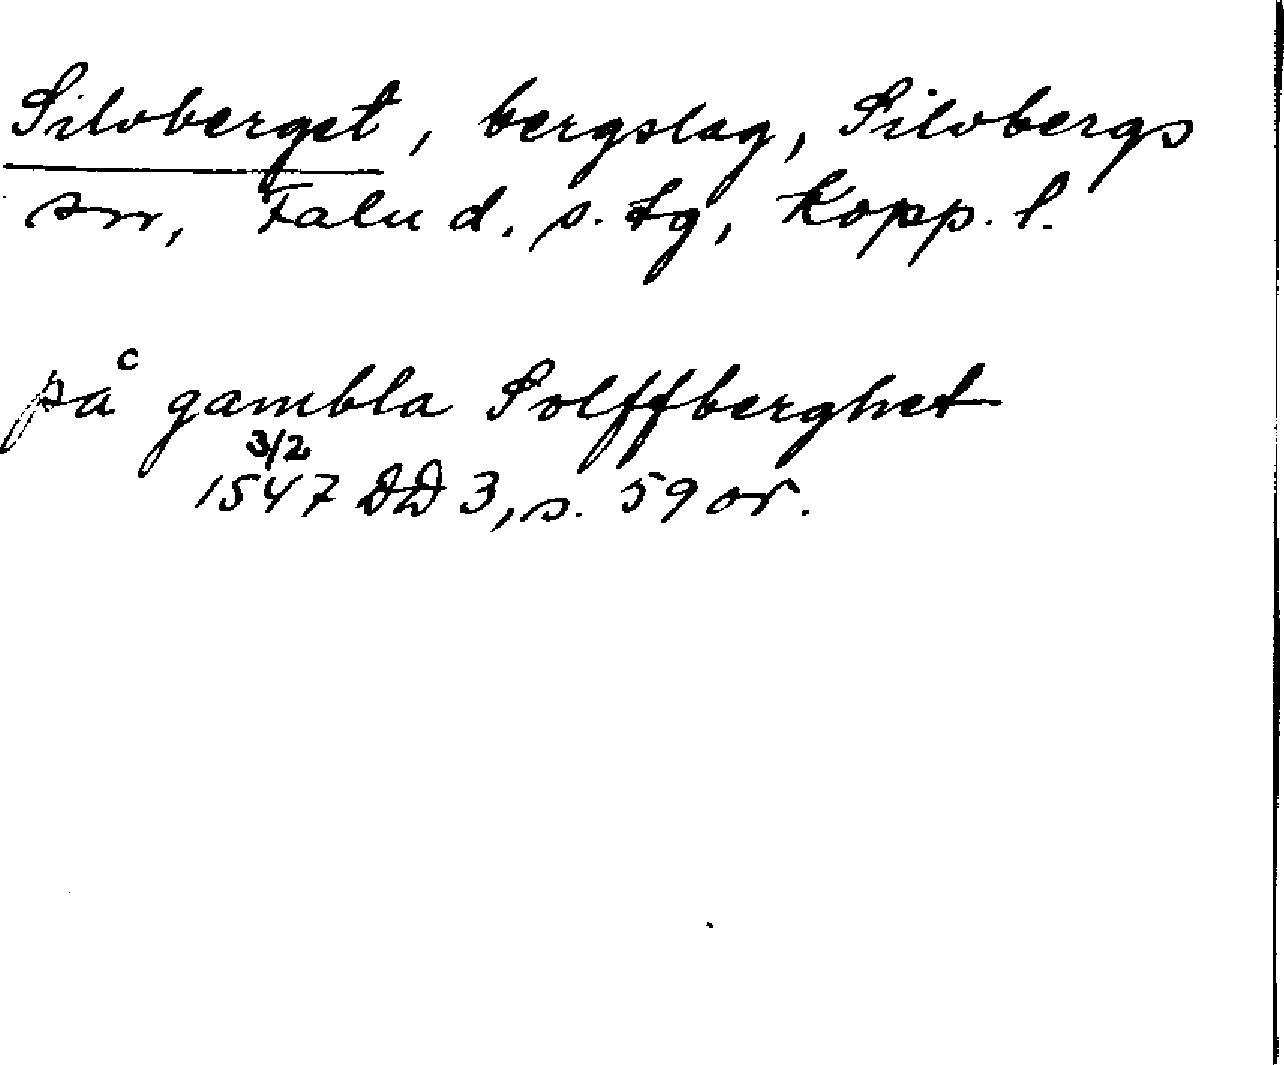 Silvberget, bergslag, Silvbergs
sn, Falu d. s. tg, Kopp. l.
på gambla Solffberghet
3/2
1547 DD 3, s. 59 or.